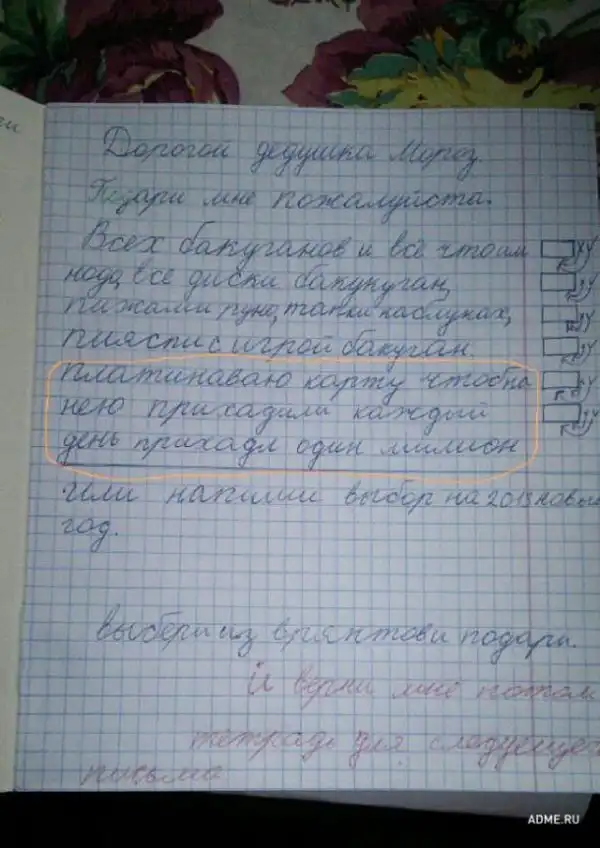 Дорогой дедушка Мороз.
Подари мне пожалуйста.
Всех бакуганов и всё что им
надо, все диски бакукуган,
пижами руно, тапки каблуках,
пияспи с игрой бакуган.
платинаваю карту чтоб на
нею прихадили каждый
день прихадл один милион
или напиши выбор на 2013 новый
год.
выбери из вряитови подари.
И верни мне потом
тетрадь для следующего
письма
ADME.RU